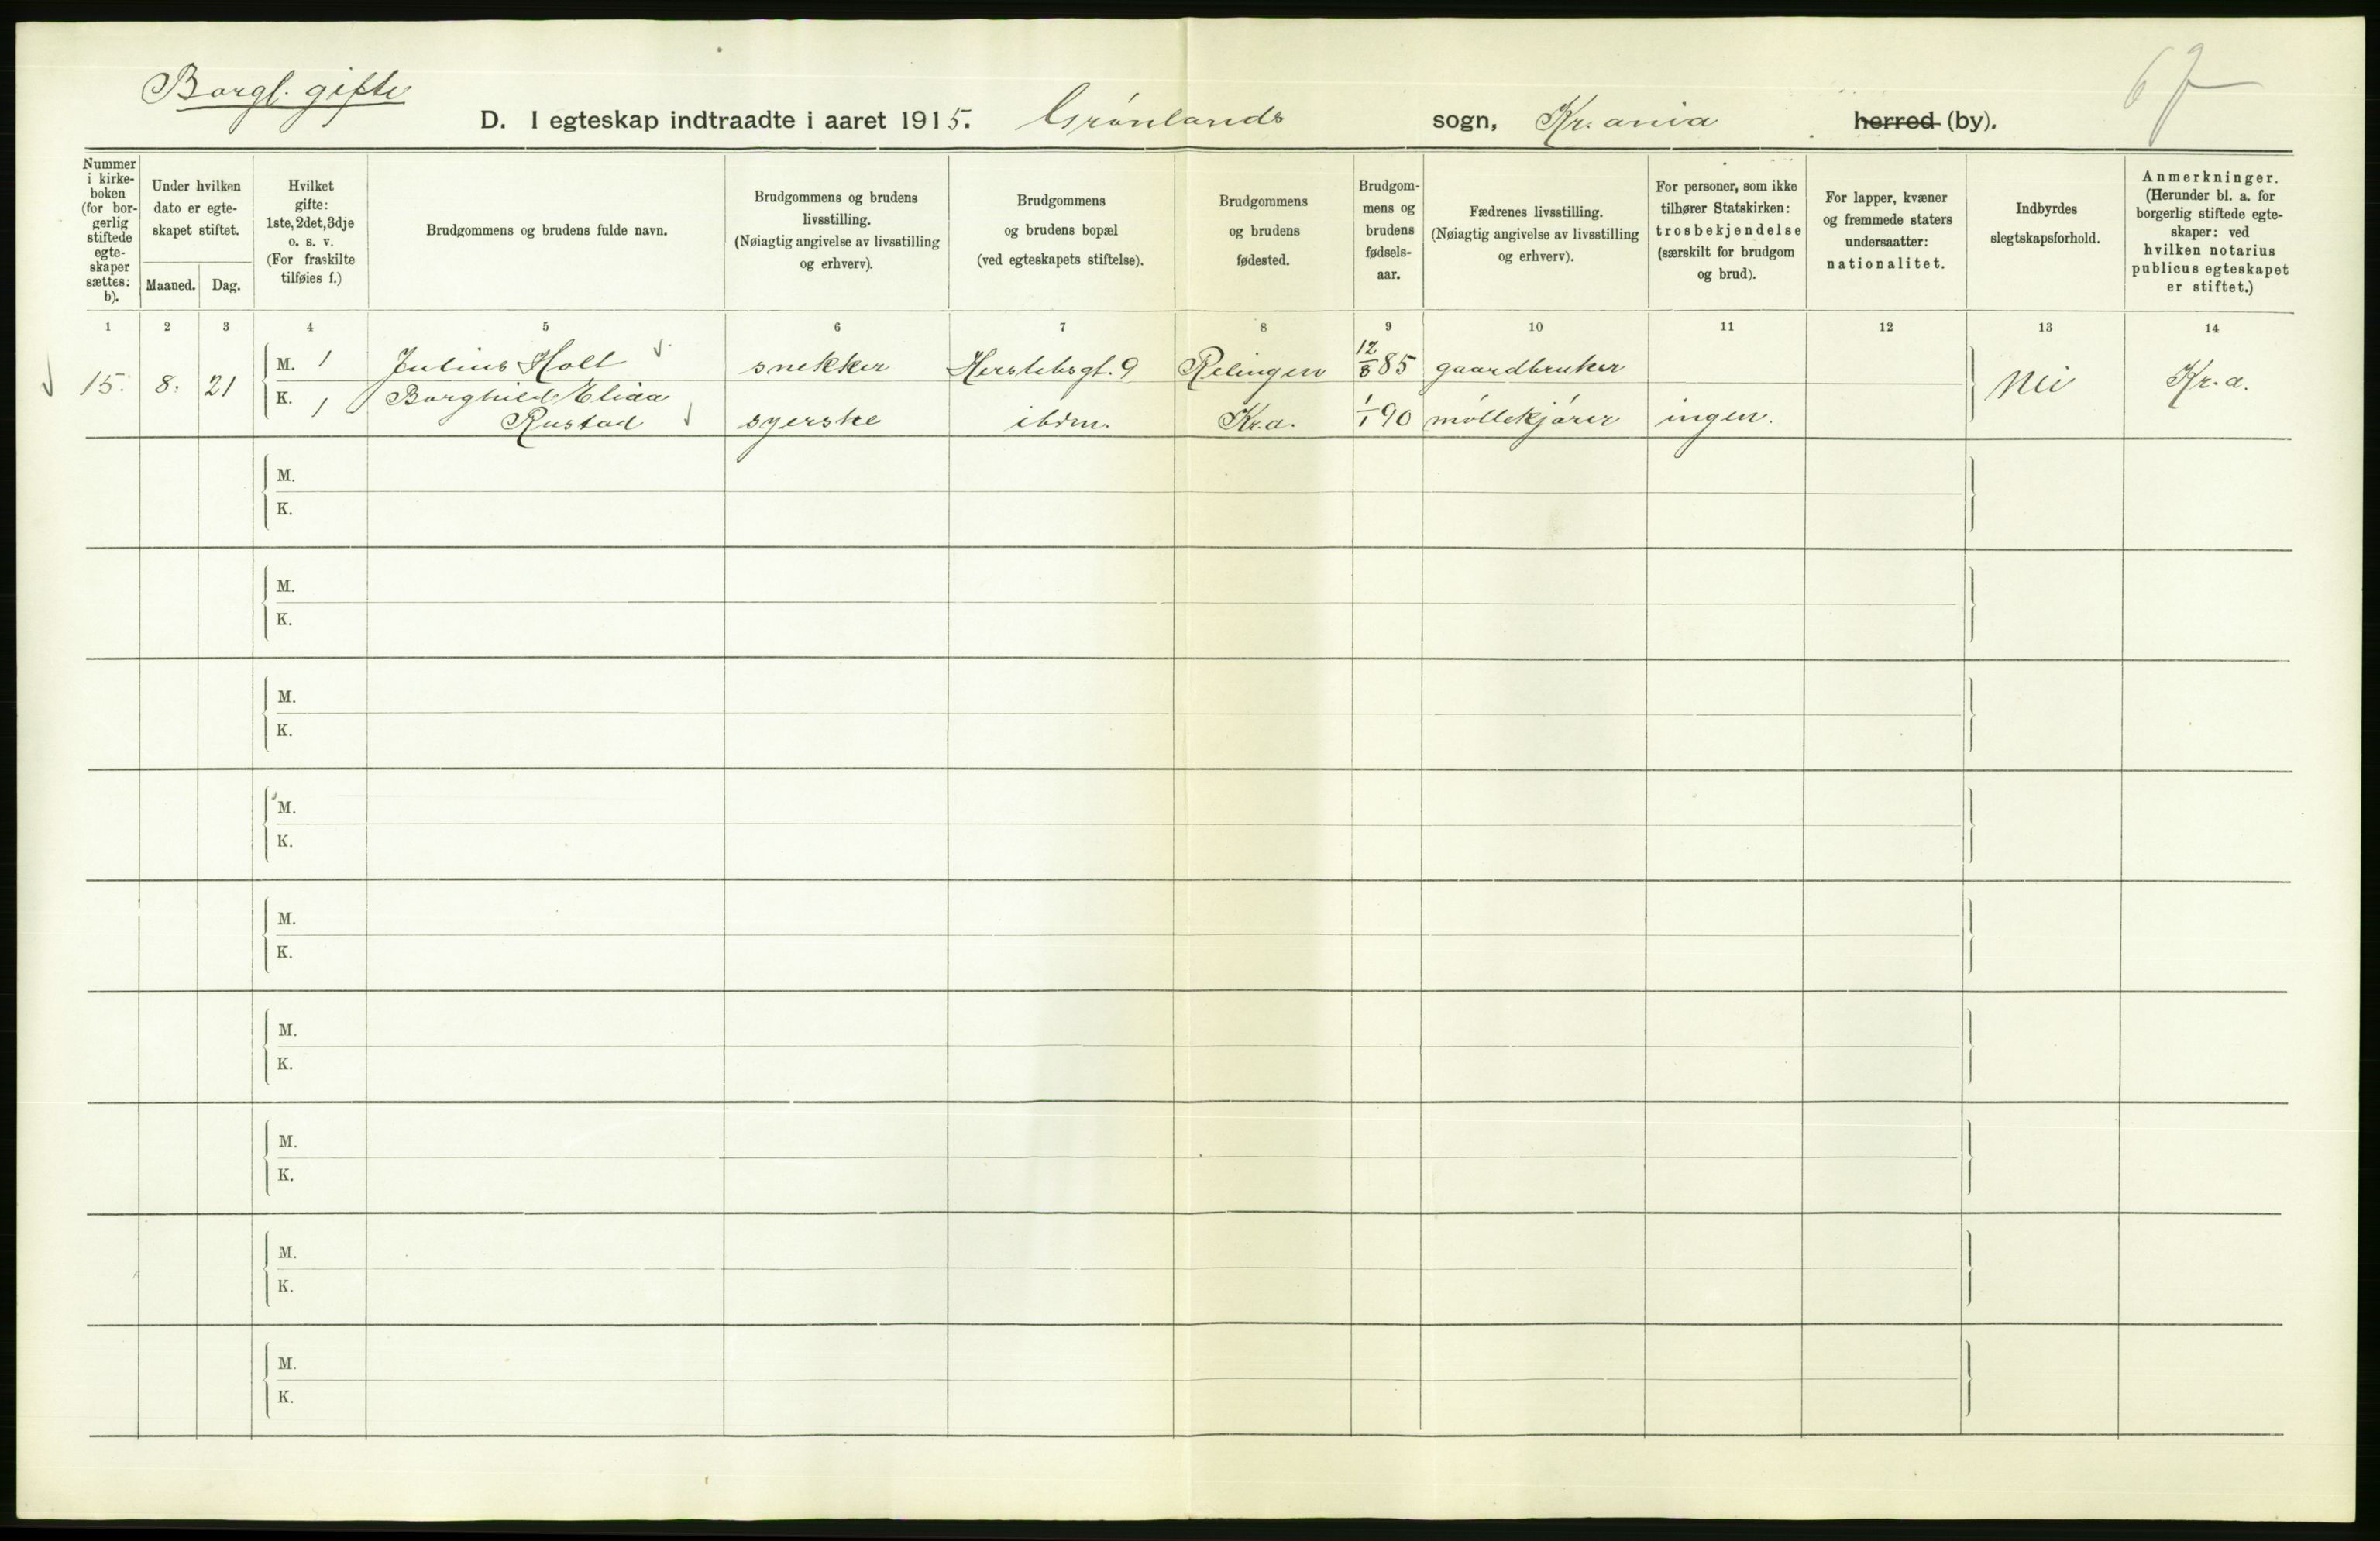 Borgl. gifte
67
D. I egteskap indtraadte i aaret 1915. Grønlands sogn, Kr.ania herred (by).
Nummer i kirke-boken (for bor-gerlig stiftede egte-skaper sættes: b).
Under hvilken dato er egte-skapet stiftet.
Maaned. Dag.
Hvilket gifte: 1ste, 2det, 3dje o. s. v. (For fraskilte tilføies f.)
Brudgommens og brudens fulde navn.
Brudgommens og brudens livsstilling. (Nøiagtig angivelse av livsstilling og erhverv).
Brudgommens og brudens bopæl (ved egteskapets stiftelse).
Brudgommens og brudens fødested.
Brudgom-mens og brudens fødsels-aar.
Fædrenes livsstilling. (Nøiagtig angivelse av livsstilling og erhverv).
For personer, som ikke tilhører Statskirken: trosbekjendelse (særskilt for brudgom og brud).
For lapper, kvæner og fremmede staters undersaatter: nationalitet.
Indbyrdes slegtskapsforhold.
Anmerkninger. (Herunder bl. a. for borgerlig stiftede egte-skaper: ved hvilken notarius publicus egteskapet er stiftet.)
1 2 3 4 5 6 7 8 9 10 11 12 13 14
15. 8. 21 M. 1 Julius Holt snekker Herslebsgt. 9 Relingen 12/8 85 gaardbruker Nei Kr.a.
K. 1 Borghild Elida
Rustad syerske ibdm. Kr.a. 1/1 90 møllekjører ingen.
M.
K.
M.
K.
M.
K.
M.
K.
M.
K.
M.
K.
M.
K.
M.
K.
M.
K.